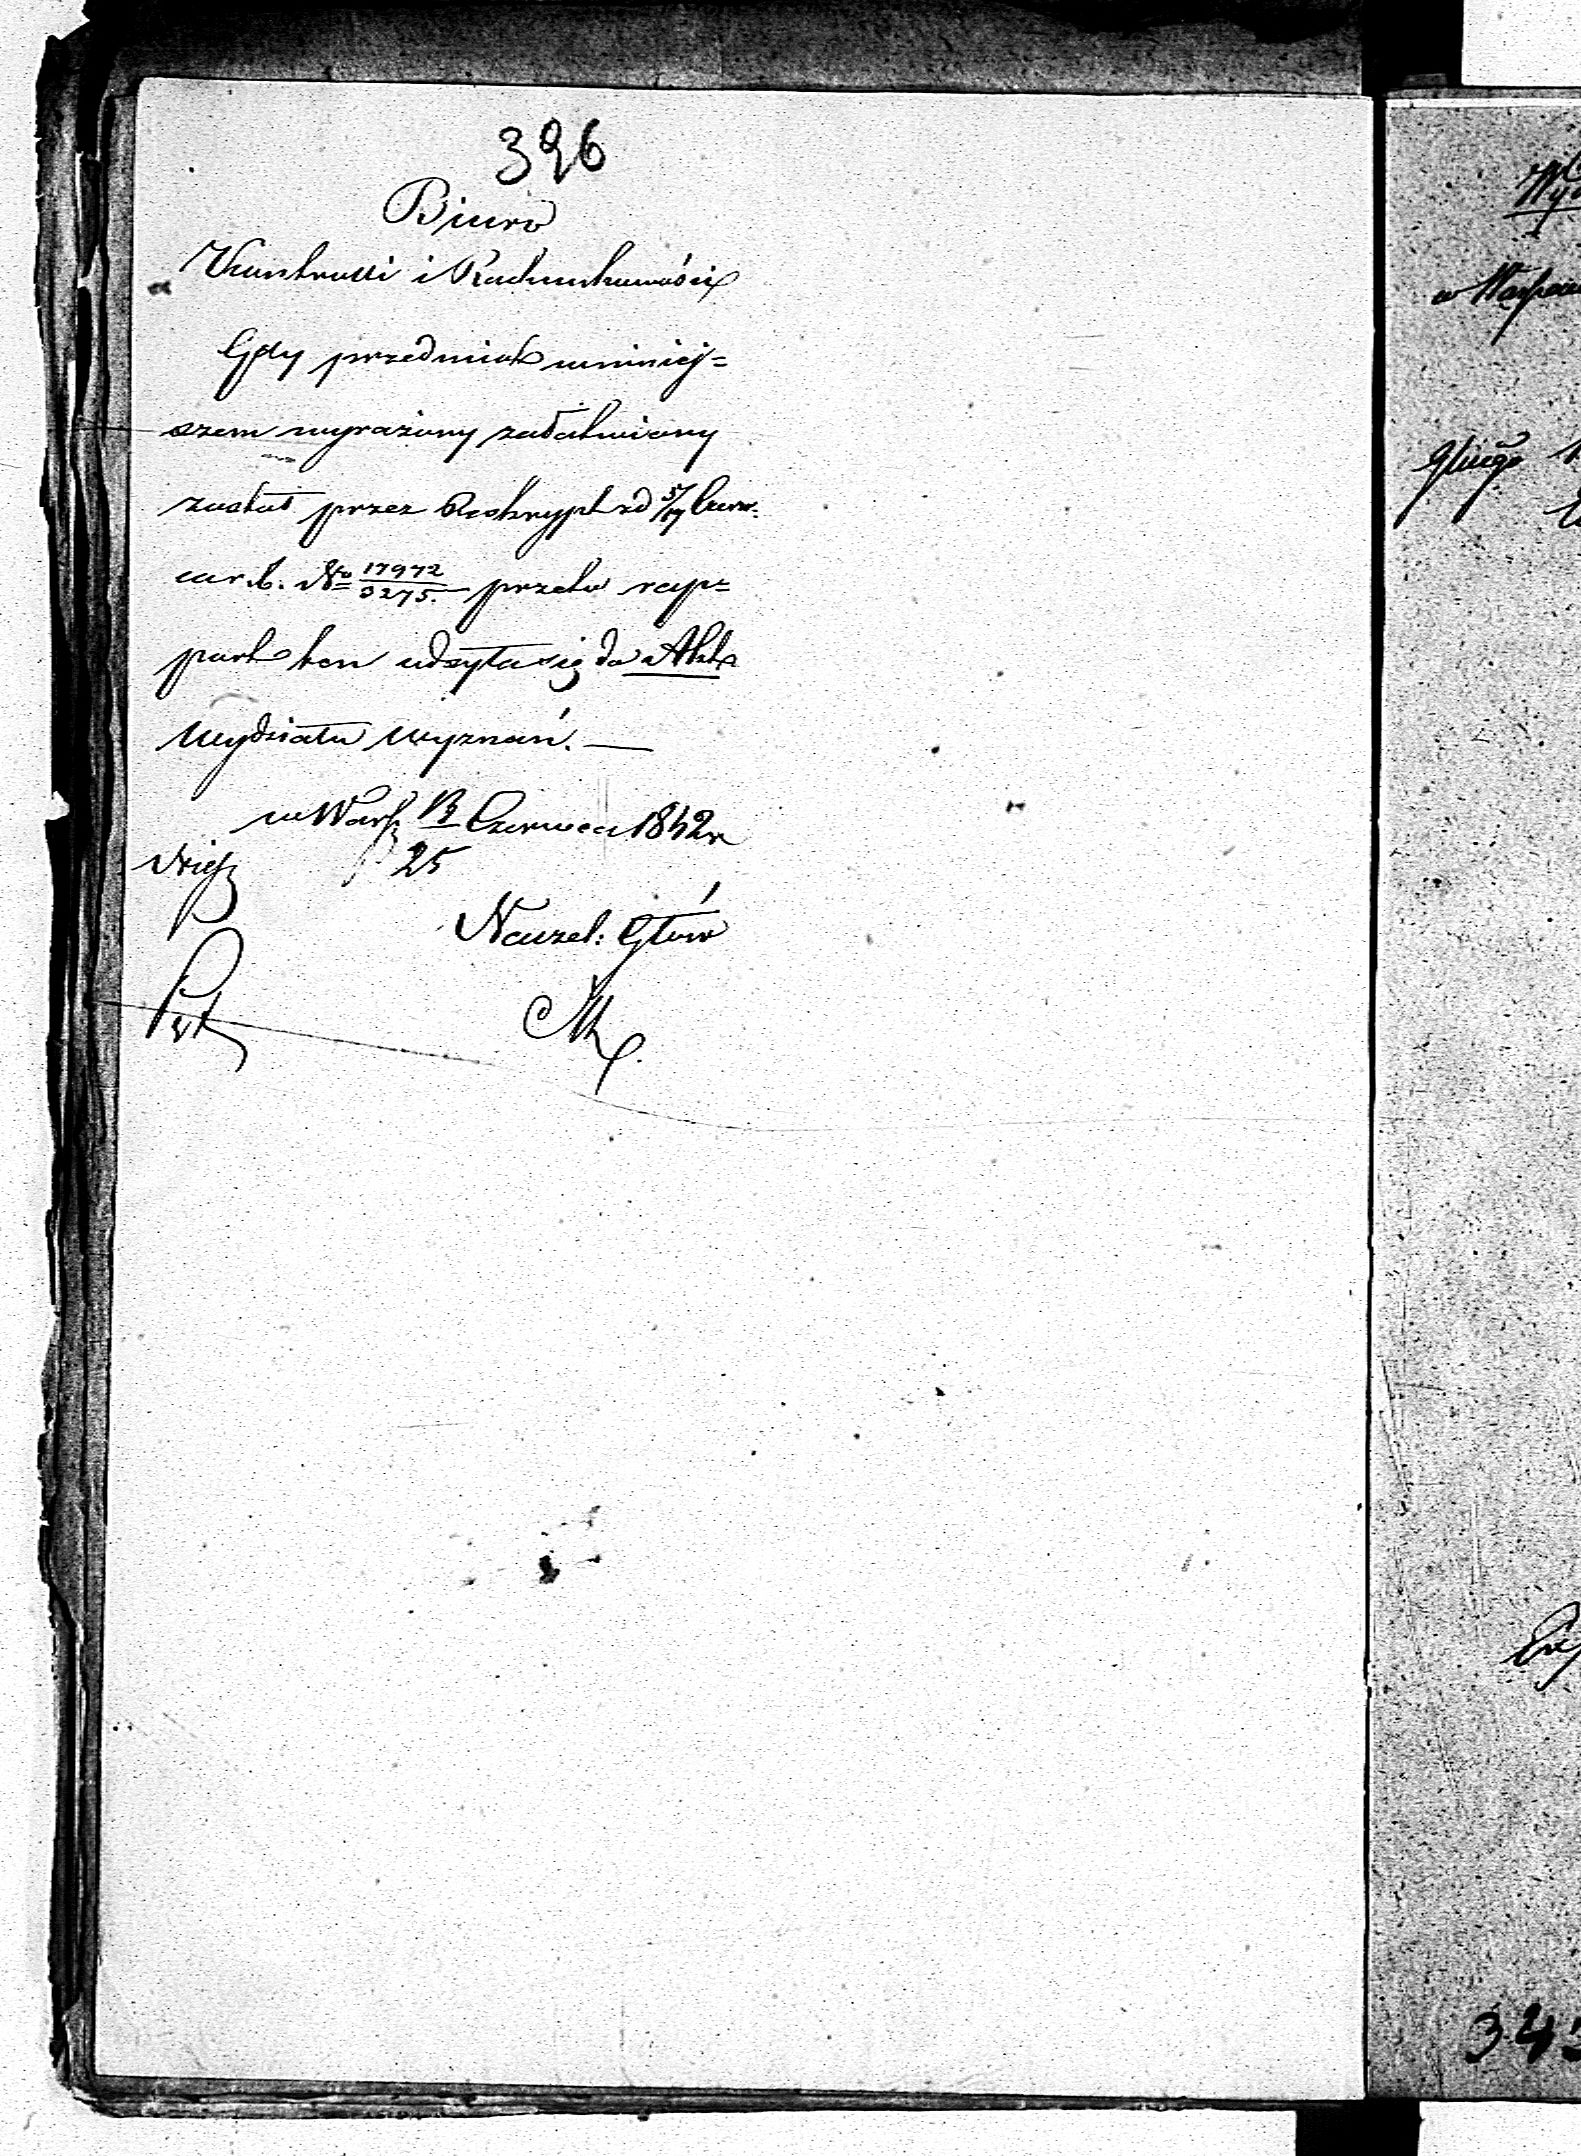 396
Biuro
Kontrolli i Rachunkowości
Gdy przedmiot w niniej=
szem wyrażony załatwiony
został przez Reskrypt z d 5/17 Czerw.
w r. b. No 17972/3275. przeto rap=
port ten odsyła się do Akt
Wydziału Wyznań. —
w Warsz 13/25 Czerwca 1842 r
Naczel: Głów
w Warszaw
343